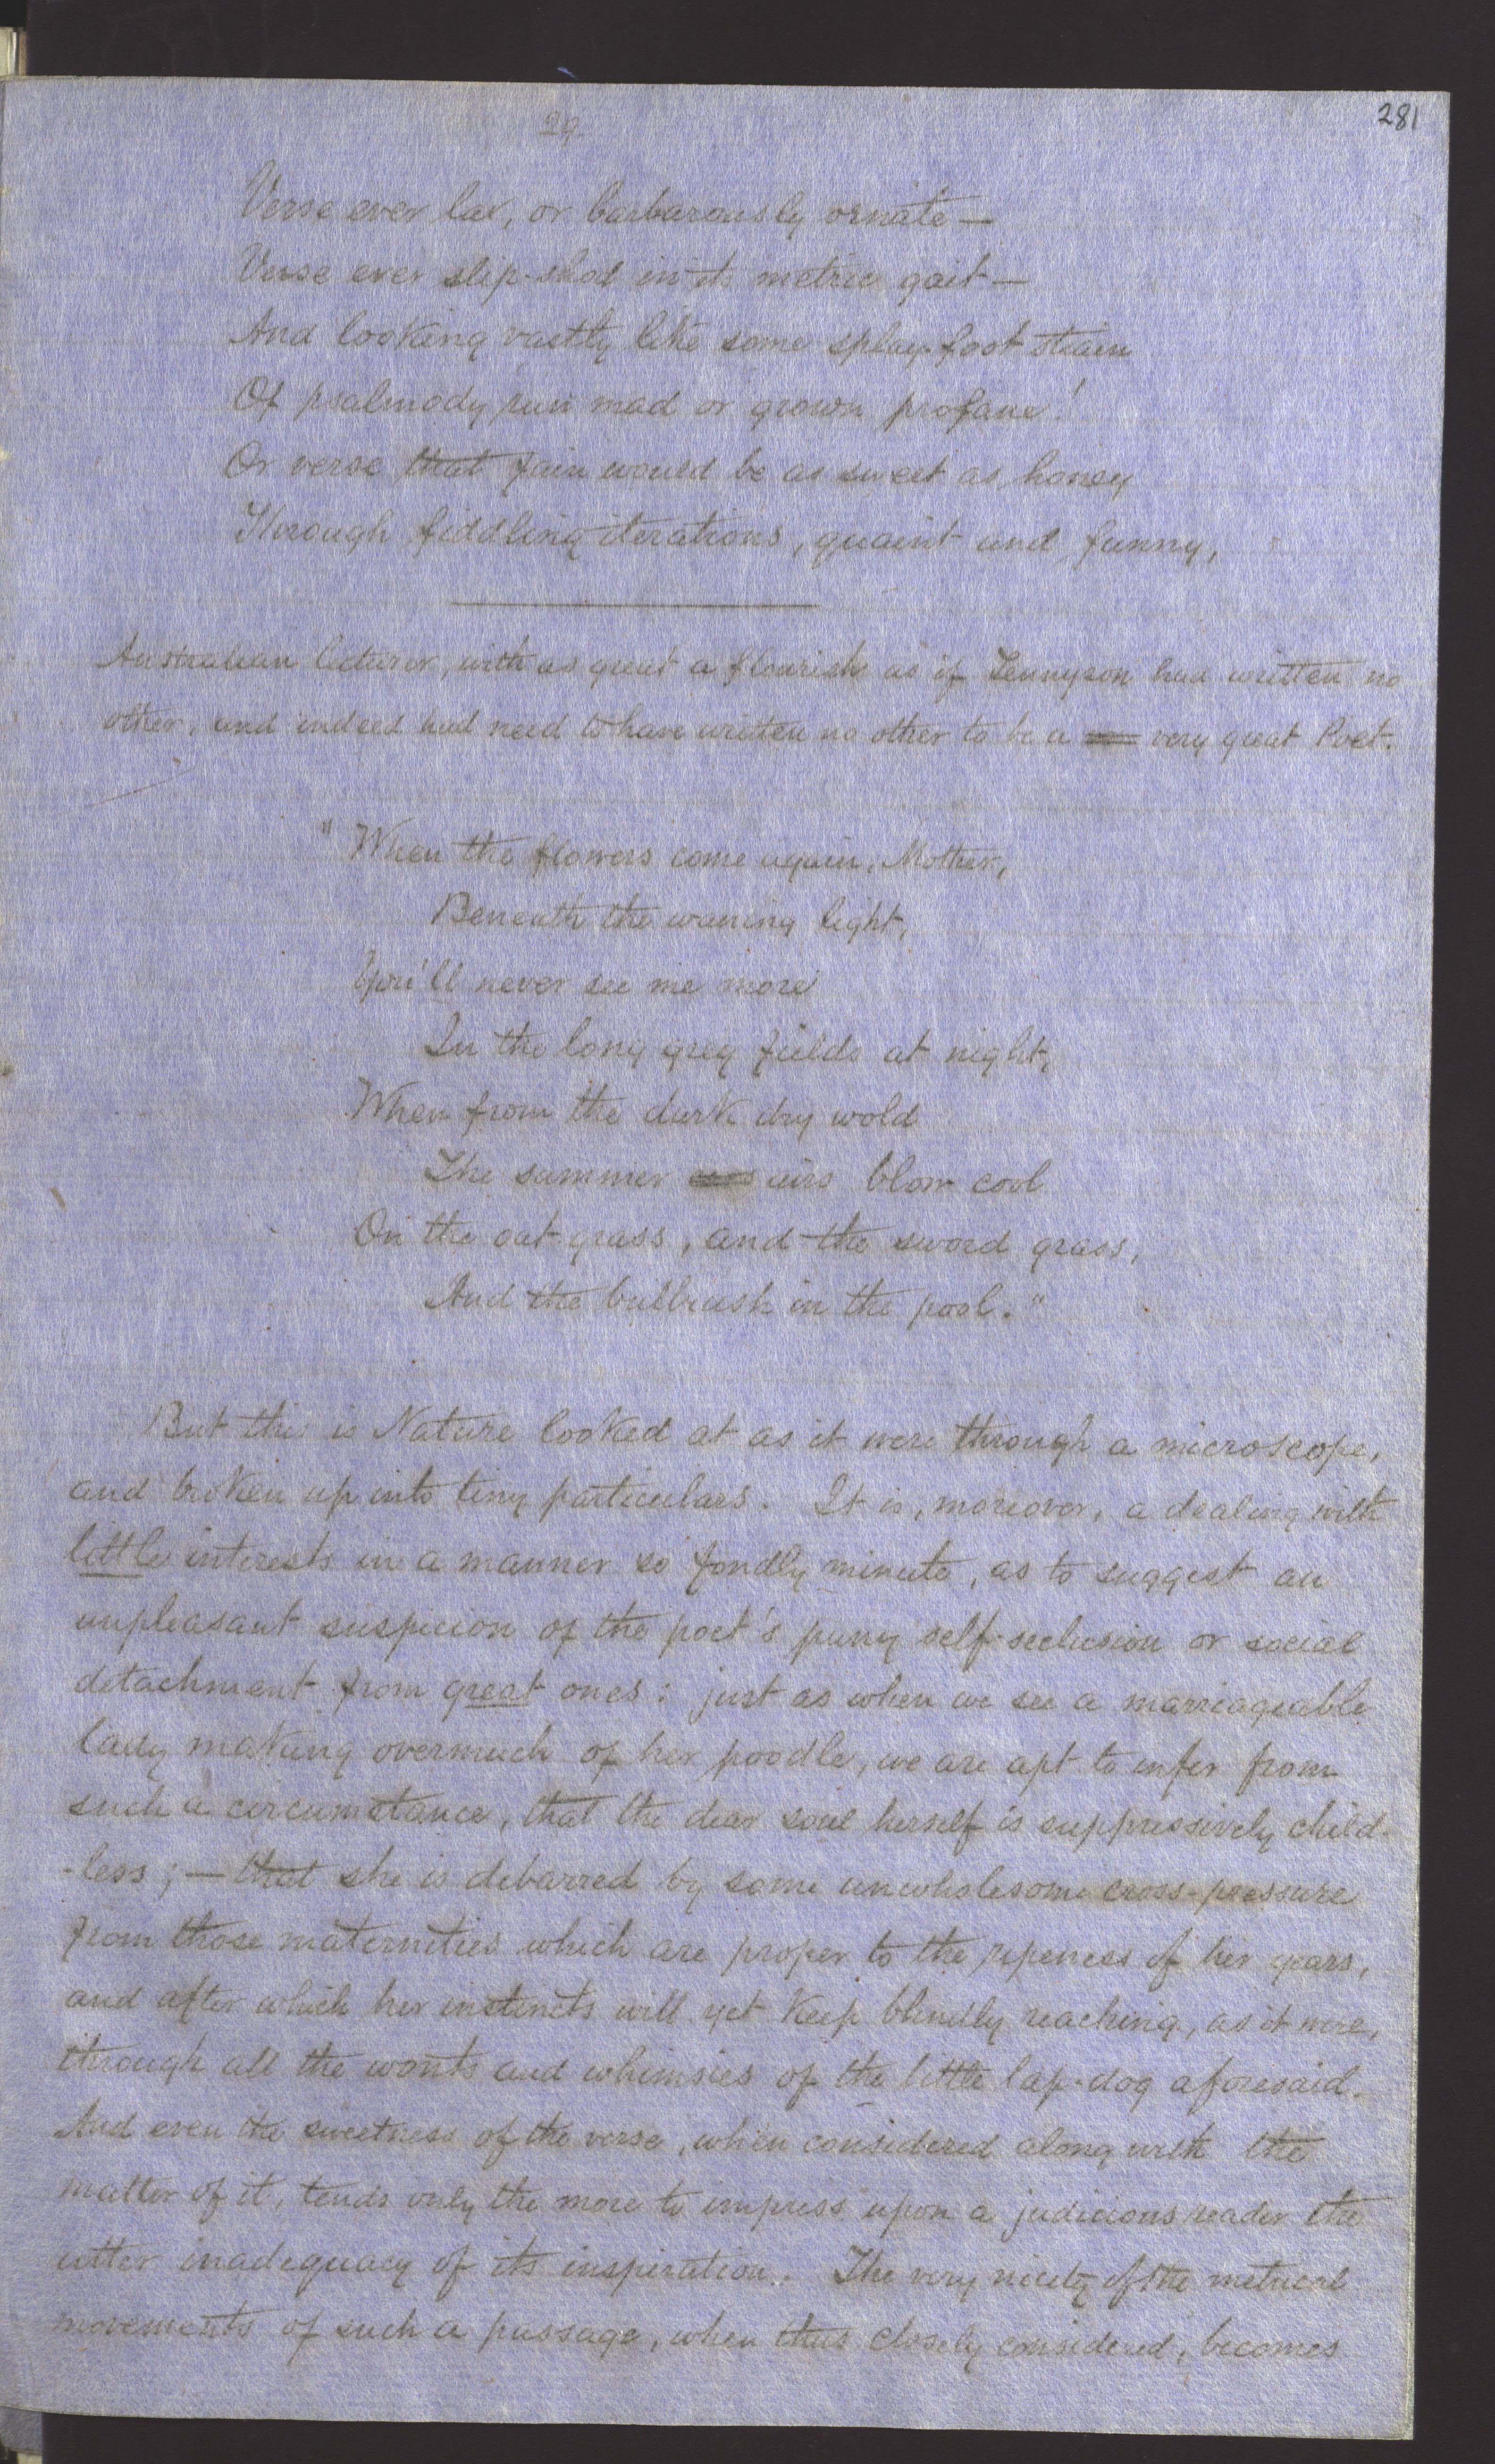 29.
281
Verse ever lax, or barbarously ornate —
Verse ever slip-shod in its metric gait —
And looking vastly like some splay-foot strain
Of psalmody run mad or grown profane!
Or verse that fain would be as sweet as honey
Through fiddling iterations, quaint and funny,
Australian lecturer, with as great a flourish as if Tennyson had written no
other, and indeed had need to have written no other to be a very great Poet.
"When the flowers come again, Mother,
Beneath the waning light,
You'll never see me more
In the long grey fields at night,
When from the dark dry wold
The summer airs blow cool
On the oat-grass, and the sword grass,
And the bullrush in the pool."
But this is Nature looked at as it were through a microscope,
and broken up into tiny particulars. It is, moreover, a dealing with
little interests in a manner so fondly minute, as to suggest an
unpleasant suspicion of the poet's puny self-seclusion or social
detachment from great ones: just as when we see a marriageable
lady making overmuch of her poodle, we are apt to infer from
such a circumstance, that the dear soul herself is suppressively child-
-less; — that she is debarred by some unwholesome cross-pressure
from those maternities which are proper to the ripeness of her years,
and after which her instincts will yet keep blindly reaching, as it were,
through all the wonts and whimsies of the little lap-dog aforesaid.
And even the sweetness of the verse, when considered along with the
matter of it, tends only the more to impress upon a judicious reader the
utter inadequacy of its inspiration. The very nicety of the metrical
movements of such a passage, when thus closely considered, becomes